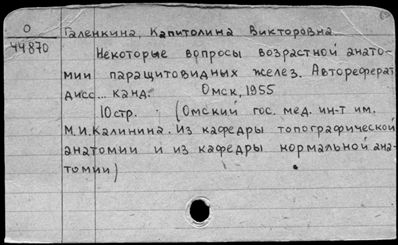 О
44870
Галенкина, Капитолина Викторовна
Некоторые вопросы возрастной анато-
мии паращитовидных желез. Автореферат
дисс... канд. Омск, 1955
10стр. (Омский гос. мед. ин-т им.
М.И.Калинина. Из кафедры топографической
анатомии и из кафедры нормальной ана-
томии)